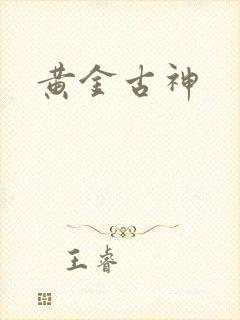 黄金古神
王睿